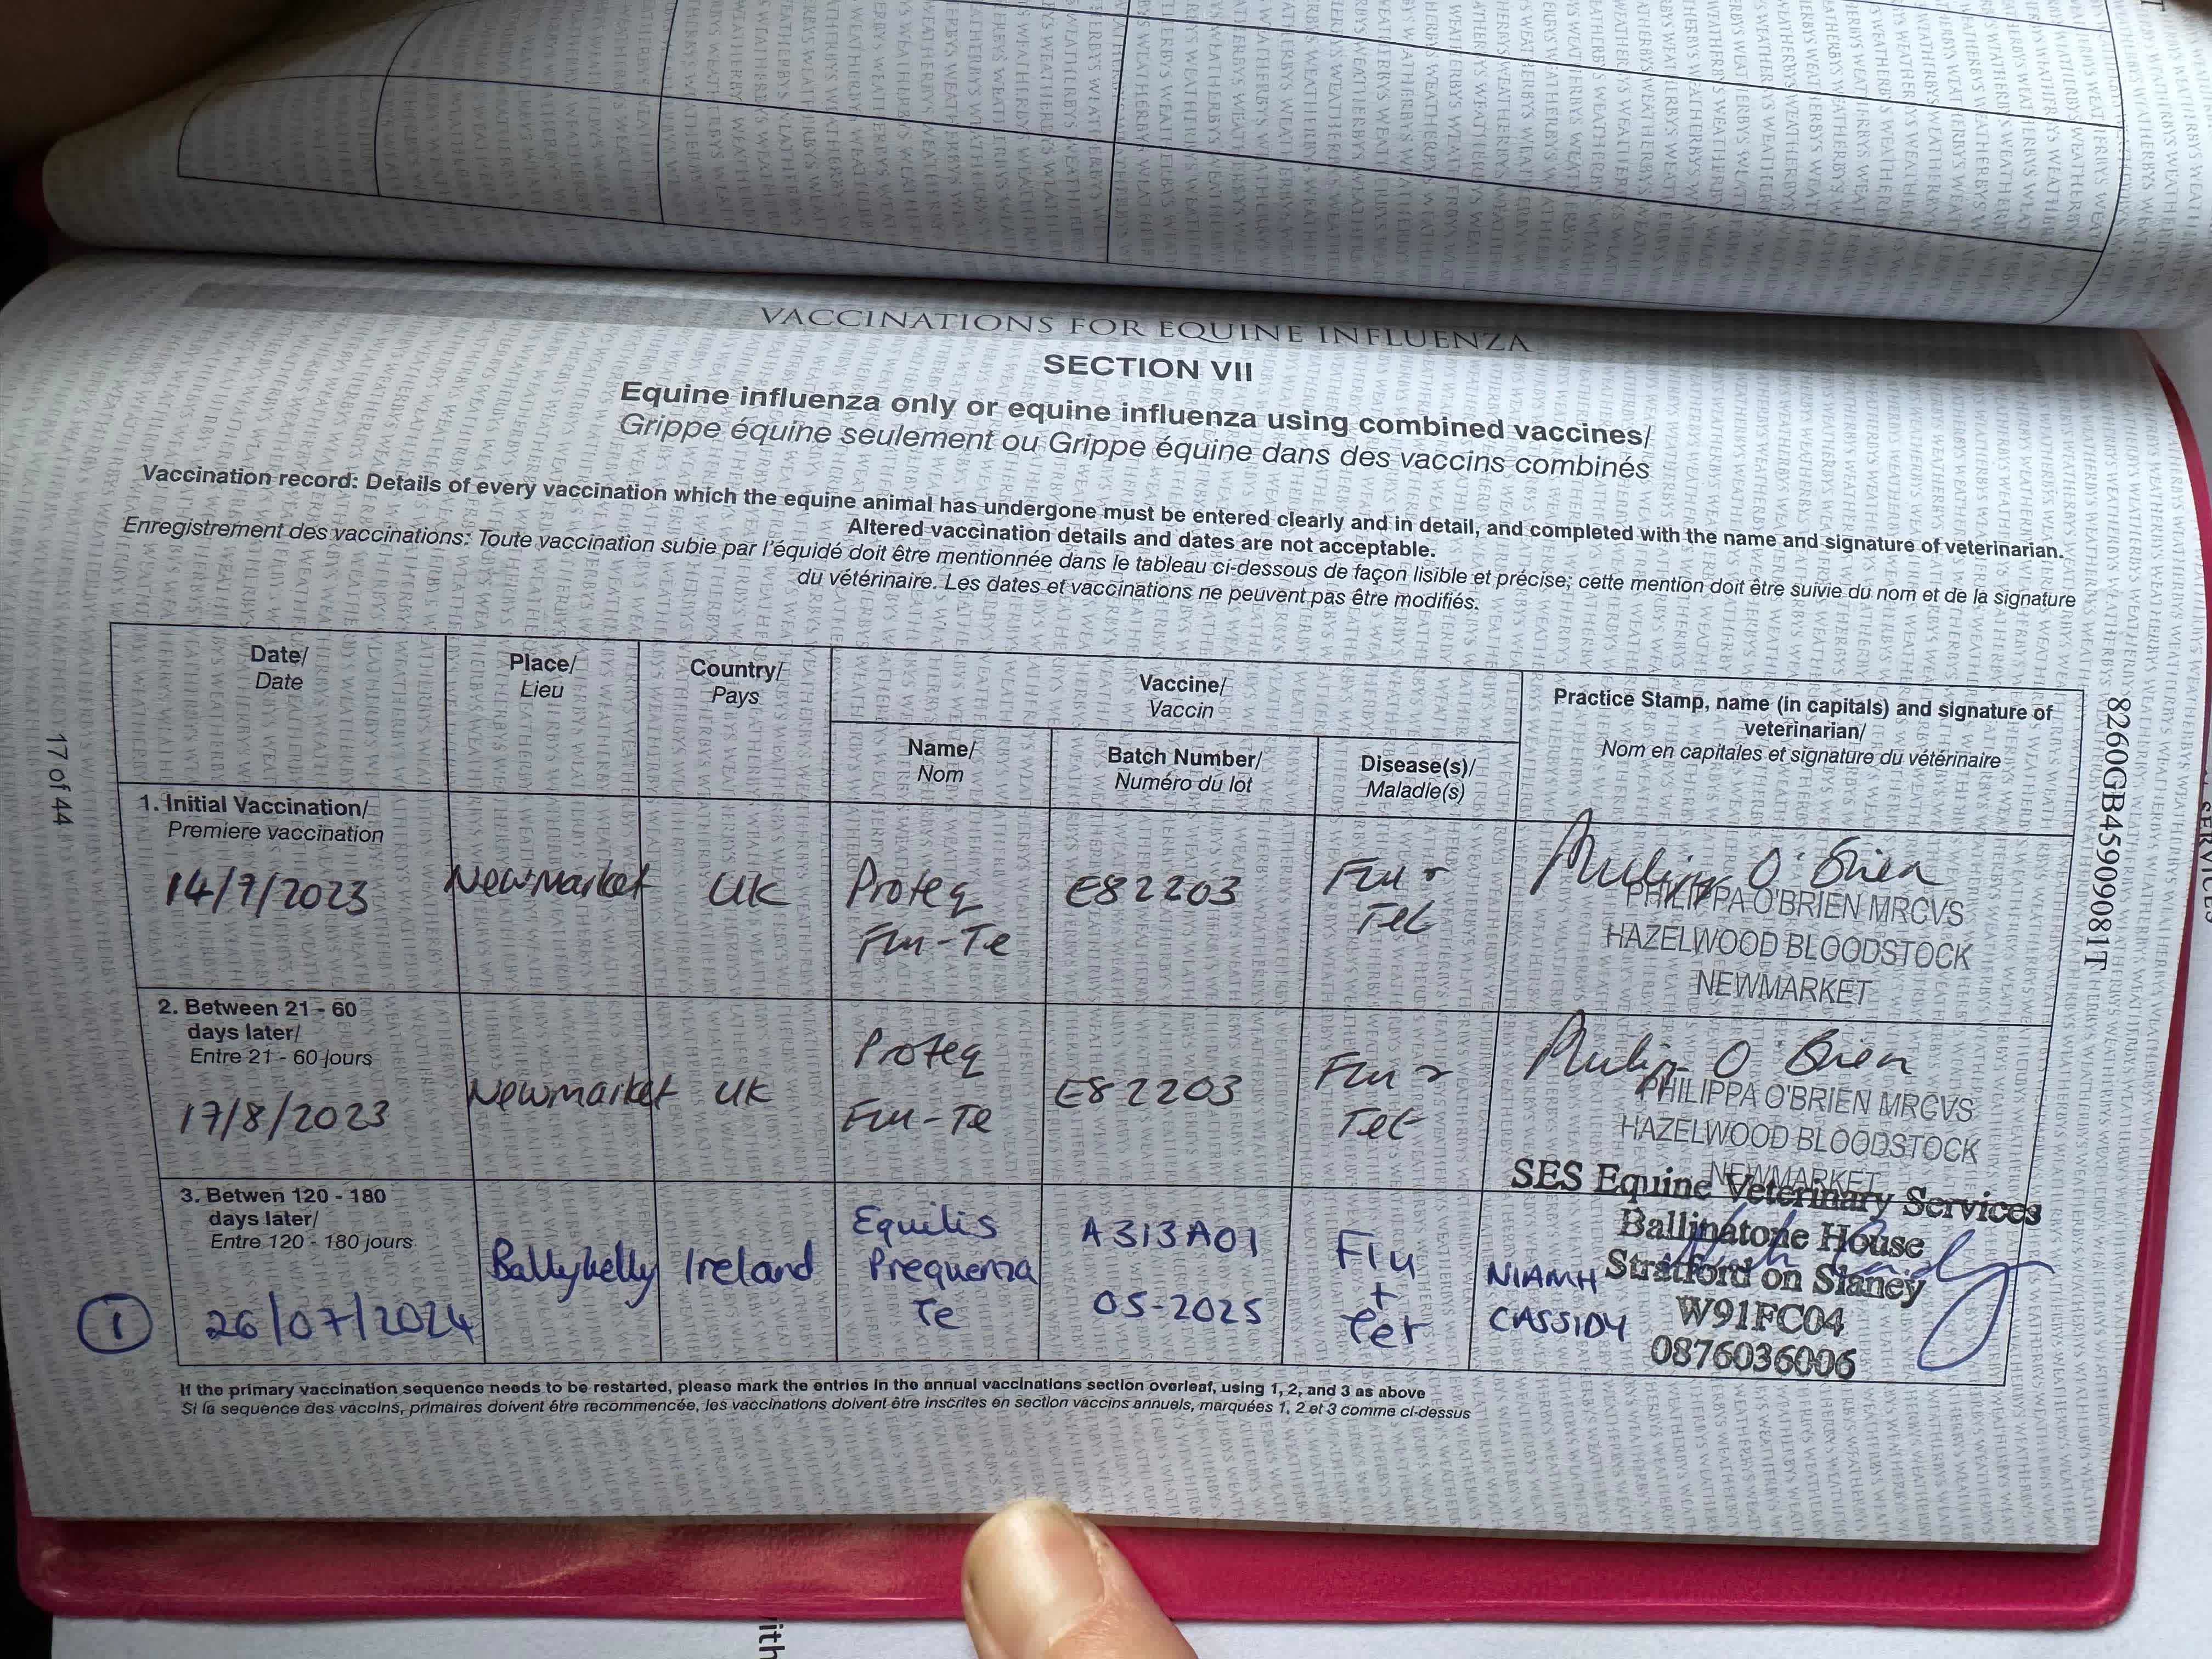 VACCINATIONS FOR EQUINE INFLUENZA
SECTION VII
Equine influenza only or equine influenza using combined vaccines/
Grippe équine seulement ou Grippe équine dans des vaccins combinés
Vaccination record: Details of every vaccination which the equine animal has undergone must be entered clearly and in detail, and completed with the name and signature of veterinarian.
Altered vaccination details and dates are not acceptable.
Enregistrement des vaccinations: Toute vaccination subie par l'équidé doit être mentionnée dans le tableau ci-dessous de façon lisible et précise; cette mention doit être suivie du nom et de la signature
du vétérinaire. Les dates et vaccinations ne peuvent pas être modifiés.
Date/
Date
Place/
Lieu
Country/
Pays
Vaccine/
Vaccin
Name/
Nom
Batch Number/
Numéro du lot
Disease(s)/
Maladie(s)
Practice Stamp, name (in capitals) and signature of
veterinarian/
Nom en capitales et signature du vétérinaire
1. Initial Vaccination/
Premiere vaccination
14/7/2023
Newmarket
UK
Proteq
Flu-Te
E82203
Flu +
Tet
O'Brien
PHILIPPA O'BRIEN MRCVS
HAZELWOOD BLOODSTOCK
NEWMARKET
2. Between 21 - 60
days later/
Entre 21 - 60 jours
17/8/2023
Newmarket
UK
Proteq
Flu-Te
E82203
Flu +
Tet
O'Brien
PHILIPPA O'BRIEN MRCVS
HAZELWOOD BLOODSTOCK
NEWMARKET
3. Betwen 120 - 180
days later/
Entre 120 - 180 jours
1
26/07/2024
Ballykelly
Ireland
Equilis
Prequenza
Te
A313A01
05-2025
Flu
+
Tet
NIAMH
CASSIDY
SES Equine Veterinary Services
Ballinatone House
Stratford on Slaney
W91FC04
0876036006
If the primary vaccination sequence needs to be restarted, please mark the entries in the annual vaccinations section overleaf, using 1, 2, and 3 as above
Si la sequence des vaccins, primaires doivent étre recommencée, les vaccinations doivent être inscrites en section vaccins annuels, marquées 1, 2 et 3 comme ci-dessus
17 of 44
8260GB45909081T